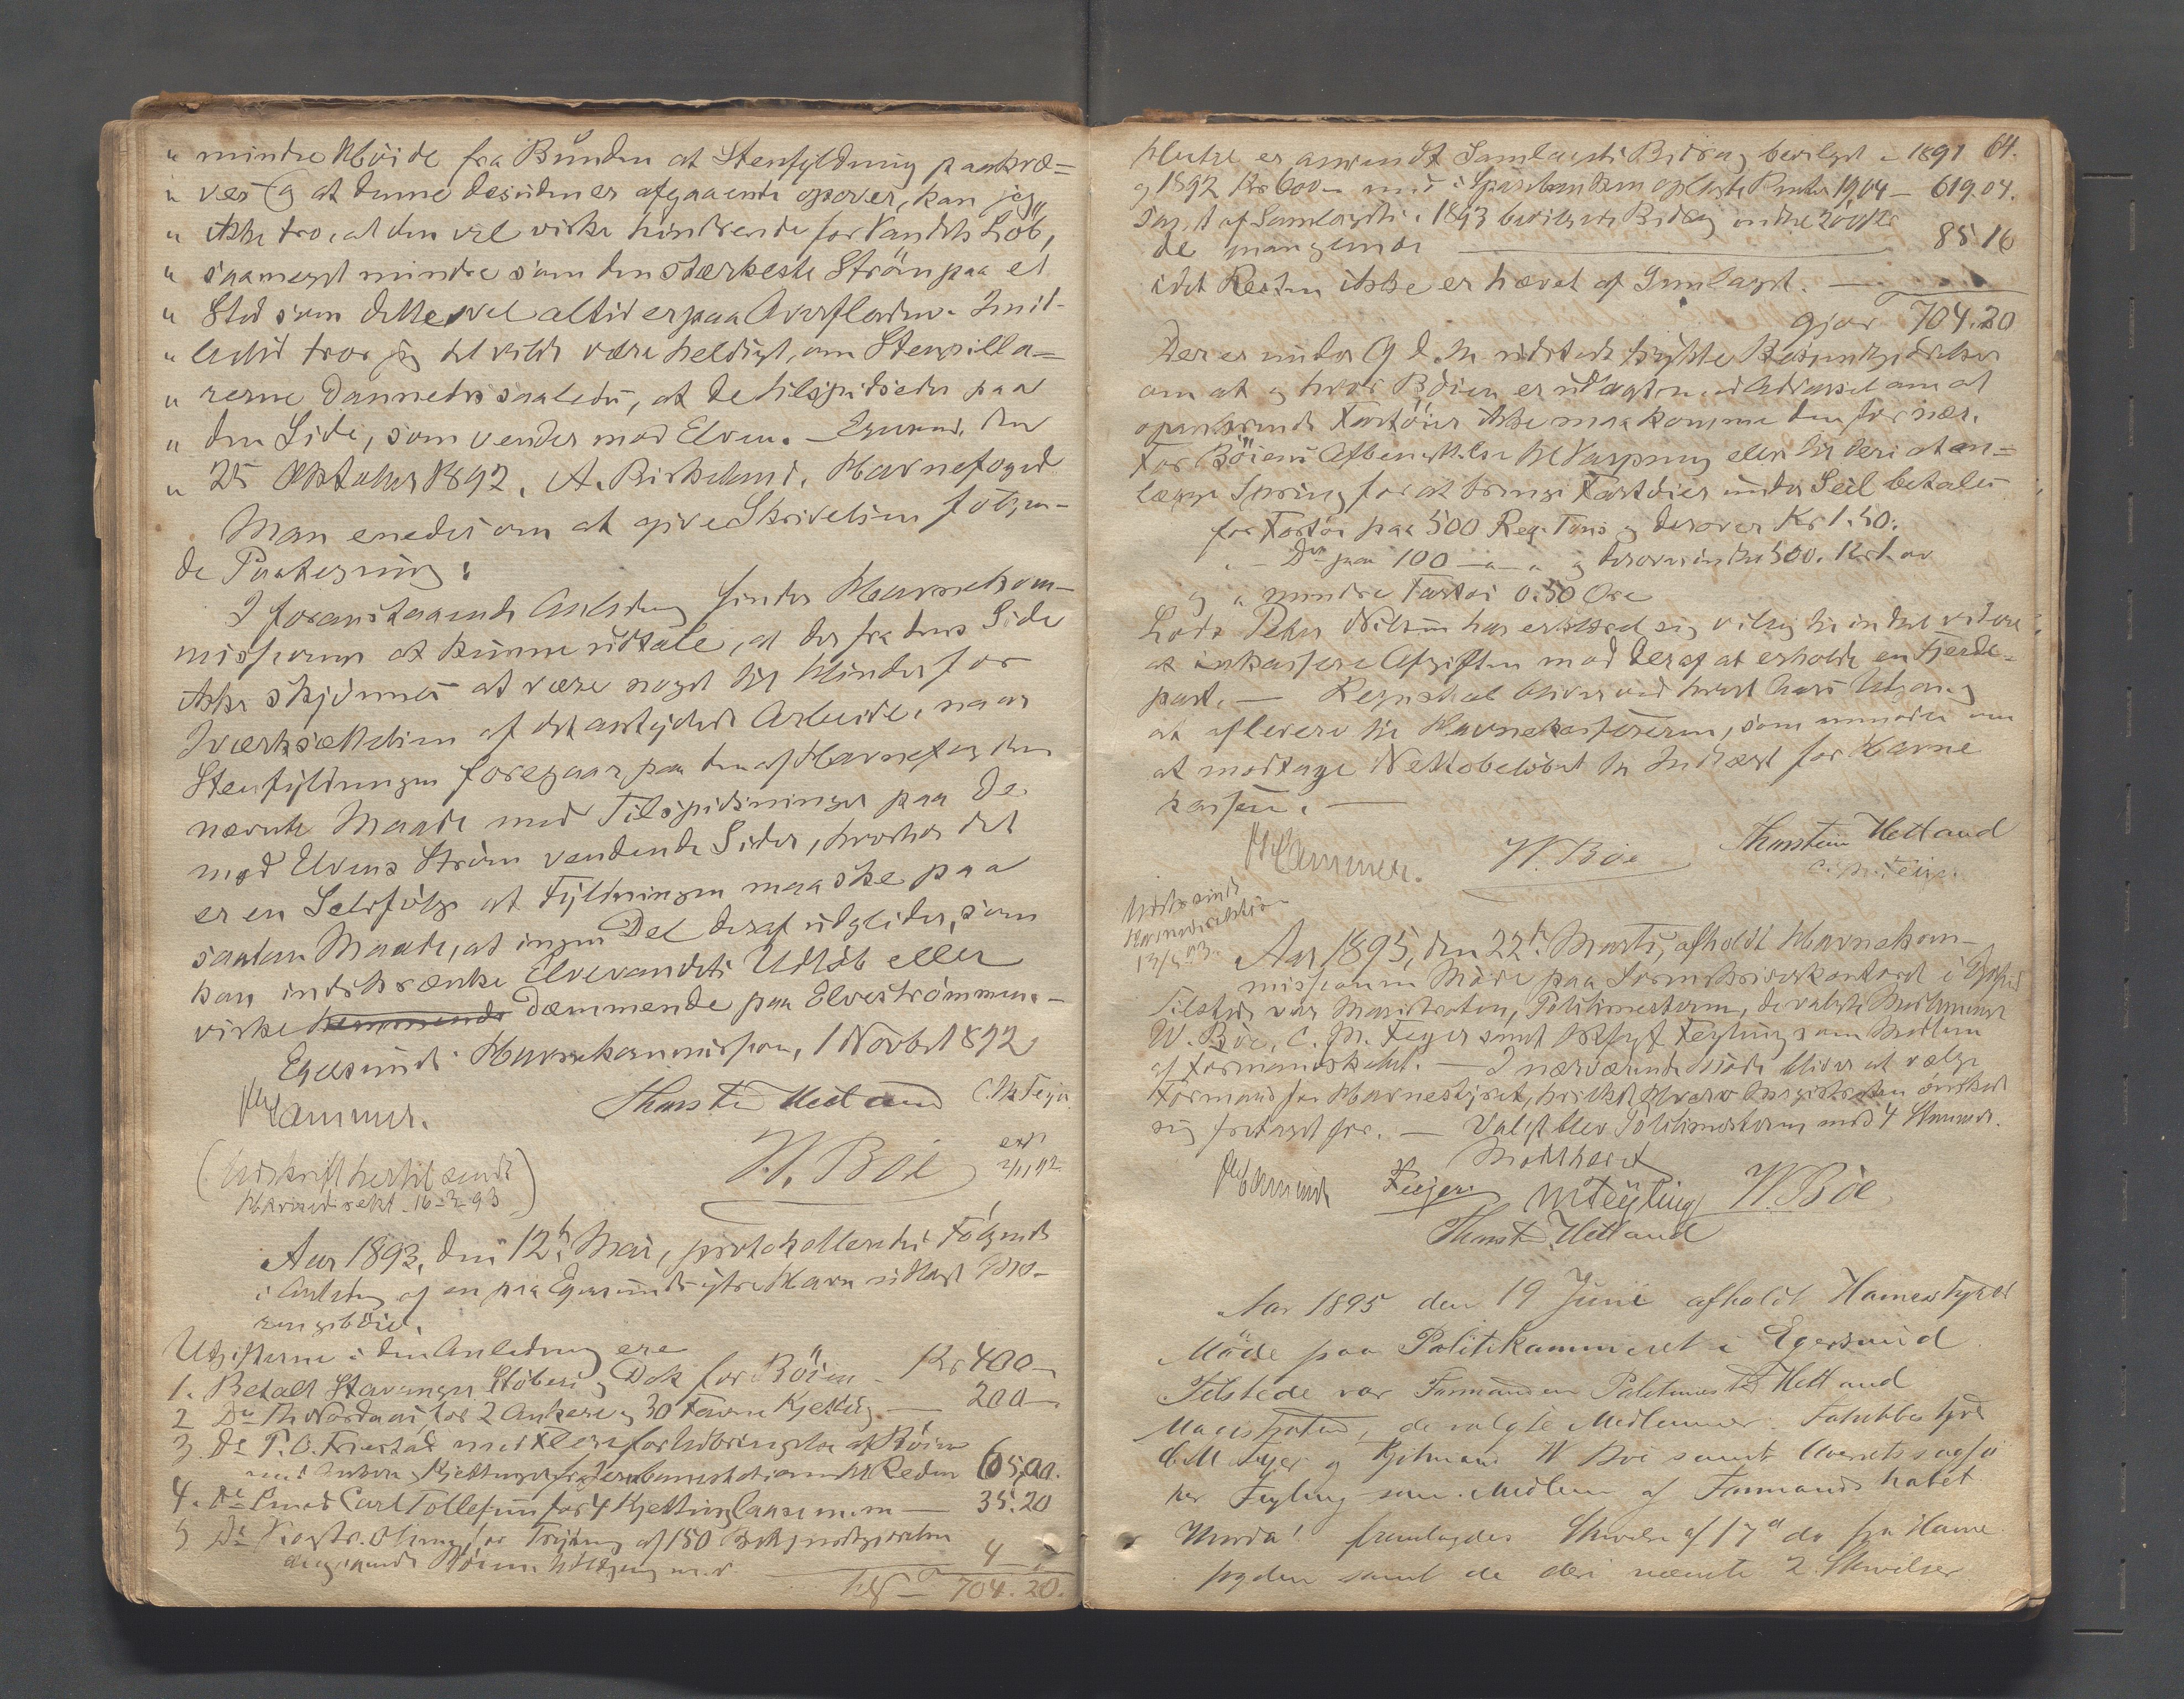 " mindre Høide fra Bunden at Stenfyldning paakræ=
" ves og at denne desuden er afgaaende opover, kan jeg
" ikke tro, at den vil virke hindrende for Vandets Løb,
" saameget mindre som den stærkeste Strøm paa et
" Sted som dette vel altid er paa Overfladen. Imid-
" lertid tror jeg det vilde være heldigt, om Stenpilla=
" rerne dannedes saaledes, at de tilspidsedes paa
" den Side, som vender mod Elven. Egersund, den
" 25 Oktober 1892. A. Birkeland, Havnefoged
Man enedes om at give Skrivelsen følgen-
de Paategning:
I foranstaaende Anledning finder Havnekom-
missionen at kunne udtale, at der fra dens Side
ikke skjønnes at være noget til Hinder for
Iværksættelsen af det antydede Arbeide, naar
Stenfyldningen foregaar paa den af Havnefogden
nævnte Maade med Tilspidsninger paa de
mod Elvens Strøm vendende Sider, hvorhos det
er en Selvfølge at Fyldningen maa ske paa
saadan Maade, at ingen Del deraf udglider, som
kan indskrænke Elvevandets Udløb eller
virke hemmende dæmmende paa Elvestrømmen.-
Egersunds Havnekommission, 1 Novbr 1892
Hammer. Thorstein Hetland C. M. Feyer
W. Böe expd 2/11 92
(Udskrift hertil sendt
Havnedirekt. 16-2-93)
Aar 1893, den 12te Mai, protokolleredes følgende
i Anledning af en paa Egersunds ytre Havn udlagt
Udgifterne i den Anledning ere
1. Betalt Stavanger Støberi & Dok for Böien - Kr 400 -
2 Do Th Nordaas for 2 Ankere og 30 Favne Kjetting — 200 -
3. Do T. O. Friestad med Flere for Udbringelse af Böien
med Anker og Kjettinger fra Jernbanestationen til Reden 65,00.
4. Do Smed Carl Tollefsen for 4 Kjettinglaase m.m — 35.20
5 Do for Trykning af 150 Bekjendtgjørelser
angaaende Böiens Udlægning m.v 4 -
704.20.
Hertil er anvendt Samlagets Bidrag bevilget i 1891 64.
og 1892 Kr 600 - med i Sparebanken oplagte Renter 19,04 - 619.04.
samt af Samlagets i 1893 bevilgede Bidrag indtil 200 Kr
de manglende — 85.16
idet Resten ikke er hævet af Samlaget. —
gjør 704.20
Der er under 9 d. M. udstedt trykte Bekjendtgjørelser
om at og hvor Böien er udlagt med Advarsel om at
opankrende Fartöier ikke maa komme den for nær.
For Böiens Afbenyttelse til Varpning eller til deri at an-
lægge Spring for at bringe Fartöier under Seil betales
for Fartöi paa 500 Reg. Tons og derover Kr 1.50.
" - Do paa 100 — " — " og derover indtil 500. Kr 1.00
og " mindre Fartöi 0.50 Øre
Lods Peter Nilsen har erklæret sig villig til indtil videre
at inkassere Afgiften mod deraf at erholde en Fjerde-
part. — Regnskab bliver ved hvert Aars Udgang
at aflevere til Havnekassereren, som anmodes om
at modtage Nettobeløbet til Indtægt for Havne
kassen. —
Hammer. W. Böe Thorstein Hetland
C. M. Feyer
Udskr. sendt
Havnedirektören
13/5 93.
Aar 1895, den 22de Marts, afholdt Havnekom-
missionen Møde paa Sorenskriverkontoret i Egersund
Tilstede var Magistraten, Politimesteren, de valgte Medlemmer
W. Böe, C. M. Feyer samt Feyling som Medlem
af Formandskabet. — I nærværende Møde bliver at vælge
Formand for Havnestyret, hvilket Hverv Magistraten ønsket
sig fritaget for. — Valgt blev Politimesteren med 4 Stemmer.
Mødet hævet
Hammer Feyer M Feyling W. Böe
Thorstein Hetland
Aar 1895 den 19 Juni afholdt Havnestyret
Møde paa Politikammeret i Egersund
Tilstede var Formanden Politimester Hetland
Magistraten, de valgte Medlemmer: Fabrikbestyrer
C. M Feyer og Kjøbmand W Böe samt Overretssagfø
rer Feyling som Medlem af Formandskabet
fremlagdes Skrivelse af 17de ds fra Havne
fogden samt de deri nævnte 2 Skrivelser